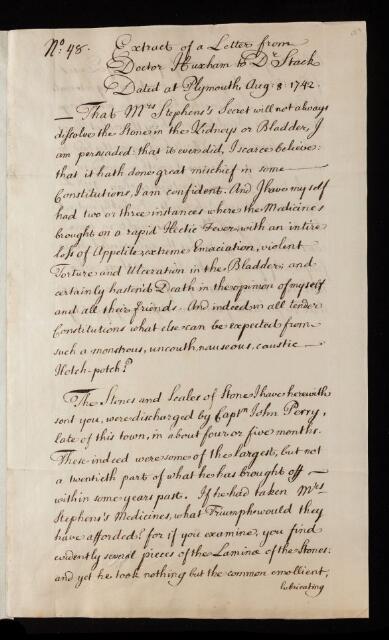 No: 48. Extract of a Letter from
Doctor Huxham to Dr. Stack
Dated at Plymouth, Aug. 8. 1742.
— That Mrs Stephens's Secret will not always
dissolve the Stone in the Kidneys or Bladder, I
am persuaded: that it ever did, I scarce believe:
that it hath done great mischief in some —
Constitutions, I am confident. And I have my self
had two or three instances where the Medicines
brought on a rapid Hectic Fever, with an intire
loss of Appetite, extreme Emaciation, violent
Torture and Ulceration in the Bladder; and
certainly hasten'd Death in the opinion of myself
and all their friends. And indeed in all tender
Constitutions what else can be expected from
such a monstrous, uncouth, nauseous, caustic —
Hotch-potch?
The Stones and Scales of Stone I have herewith
sent you, were discharged by Captn John Perry,
late of this town, in about four or five months.
These indeed were some of the largest, but not
a twentieth part of what he has brought off —
within some years past. If he had taken Mrs
Stephens's Medicines, what Triumph would they
have afforded! for if you examine, you find
evidently several pieces of the Laminæ of the Stones:
and yet he took nothing but the common emollient,
lubricating